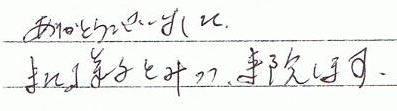 ありがとうございました.
また様子とみつつ、来院します.